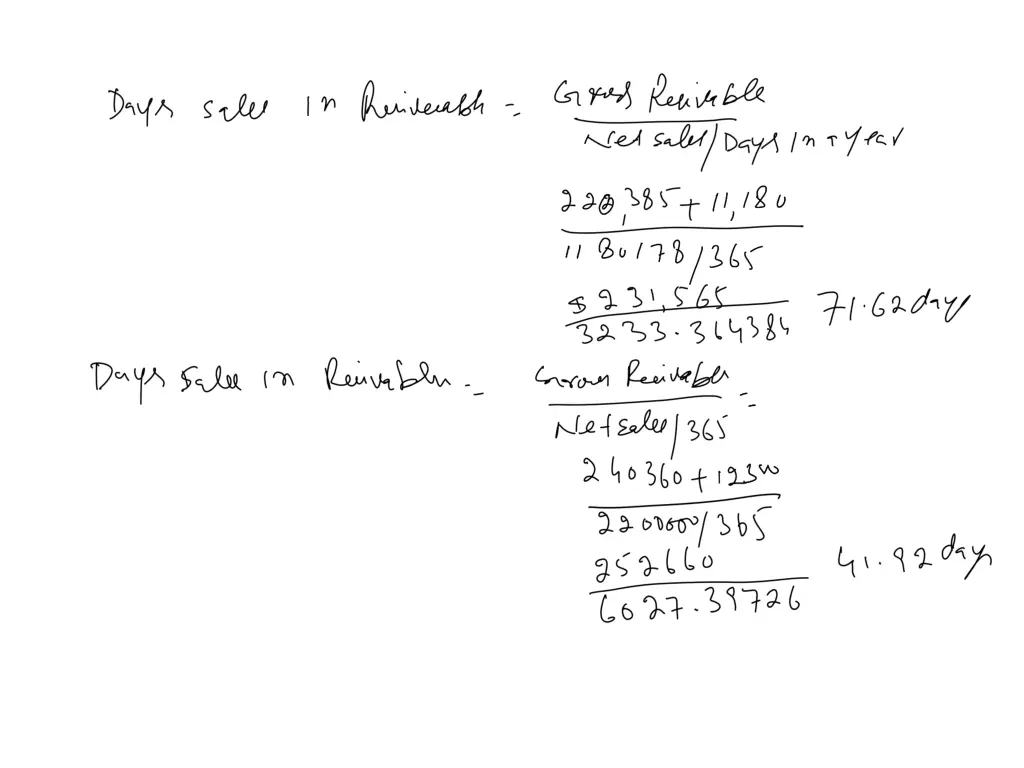 Days sales in Receivable = Gross Receivable
Net sales/Days in a year
220,385 + 11,180
1180178/365
$ 231,565
3233.364384 71.62 days
Days sales in Receivables = Gross Receivables =
Net sales/365
240360 + 12300
2200000/365
252660
6027.39726 41.92 days